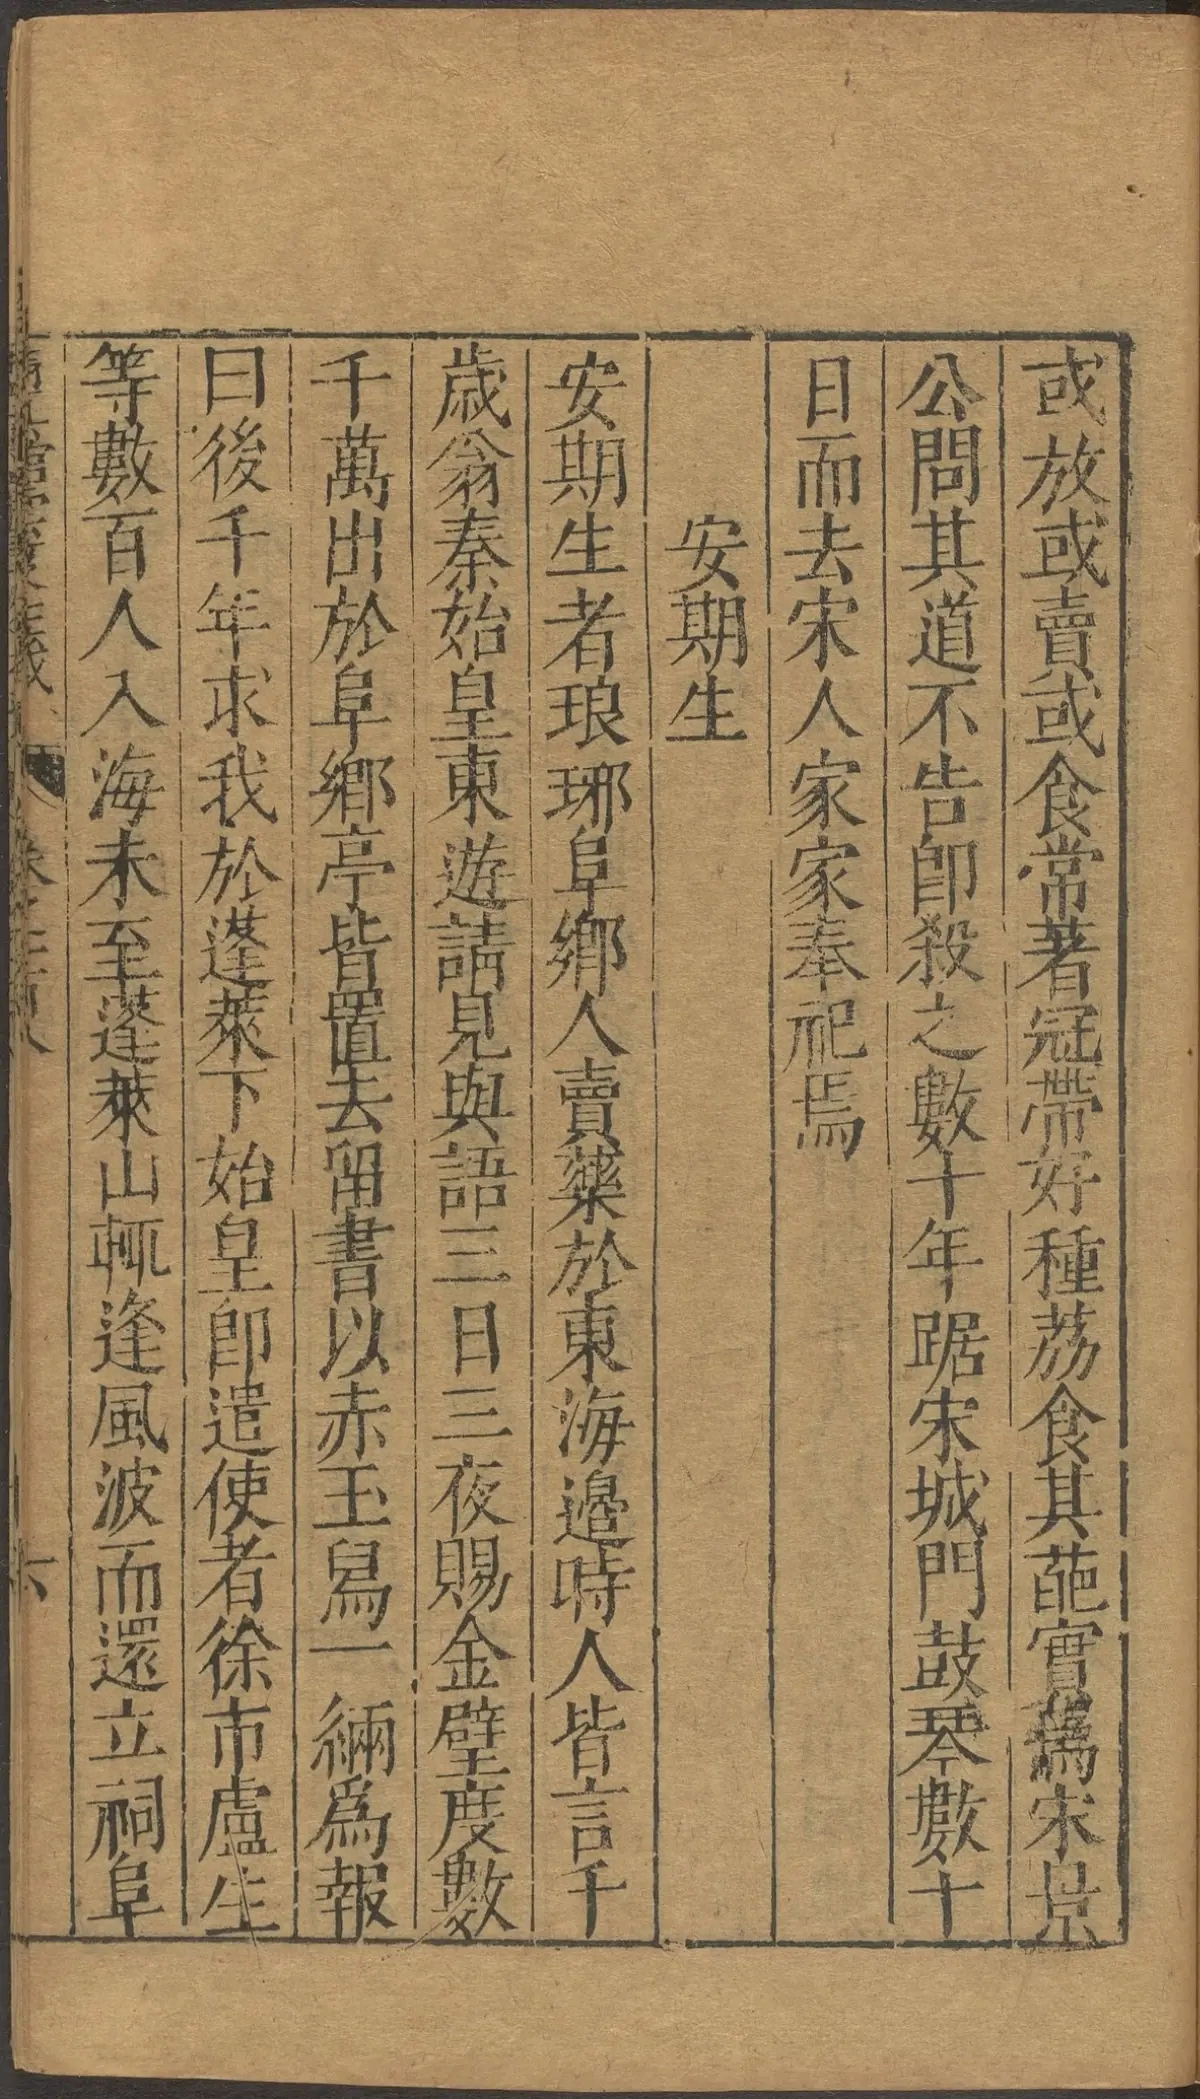 或放或賣或食常著冠帶好種荔食其葩實焉宋景
公問其道不告即殺之數十年踞宋城門鼓琴數十
日而去宋人家家奉祀焉
安期生
安期生者琅琊阜鄉人賣藥於東海邊時人皆言千
歲翁秦始皇東遊請見與語三日三夜賜金璧度數
千萬出於阜鄉亭皆置去留書以赤玉舄一緉爲報
曰後千年求我於蓬萊下始皇即遣使者徐市盧生
等數百人入海未至蓬萊山輒逢風波而還立祠阜